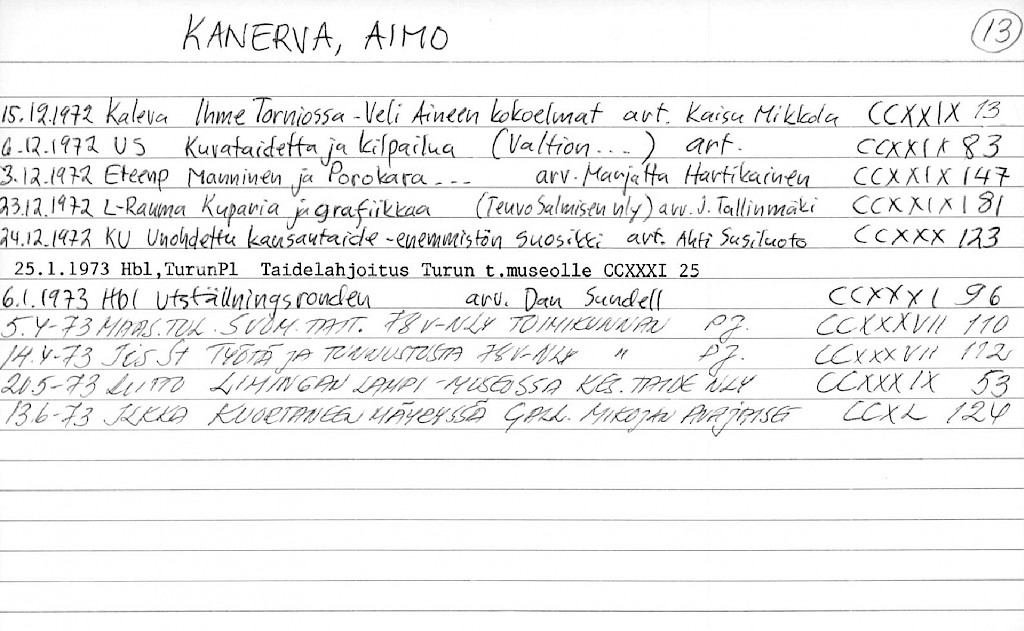 KANERVA, AIMO 13
15.12.1972 Kaleva Ihme Torniossa - Veli Aineen kokoelmat art. Kaisu Mikkola CCXXIX 13
6.12.1972 US Kuvataidetta ja kilpailua (Valtion...) art. CCXXIX 83
3.12.1972 Eteenp Manninen ja Porokara... arv. Marjatta Hartikainen CCXXIX 147
23.12.1972 L-Rauma Kuparia ja grafiikkaa (Teuvo Salmisen nly) arv. J. Tallinmäki CCXXIX 181
24.12.1972 KU Unohdettu kansantaide - enemmistön suosikki art. Ahti Susiluoto CCXXX 123
25.1.1973 Hbl,TurunPl Taidelahjoitus Turun t.museolle CCXXXI 25
6.1.1973 Hbl Utställningsronden arv. Dan Sundell CCXXXI 96
5.4-73 MAAS.TUL. SUOM. TAIT. 78 V-NLY TOIMIKUNNAN PJ. CCXXXVII 110
14.4-73 TYÖTÄ JA TUNNUSTUSTA 78V-NLY " PJ. CCXXXVII 112
20.5-73 LIITTO LIMINGAN LAMPI-MUSEOSSA KES. TAIDE NLY CCXXXIX 53
13.6-73 ILKKA KUORTANEEN GALL. AVAJAISET CCXL 124